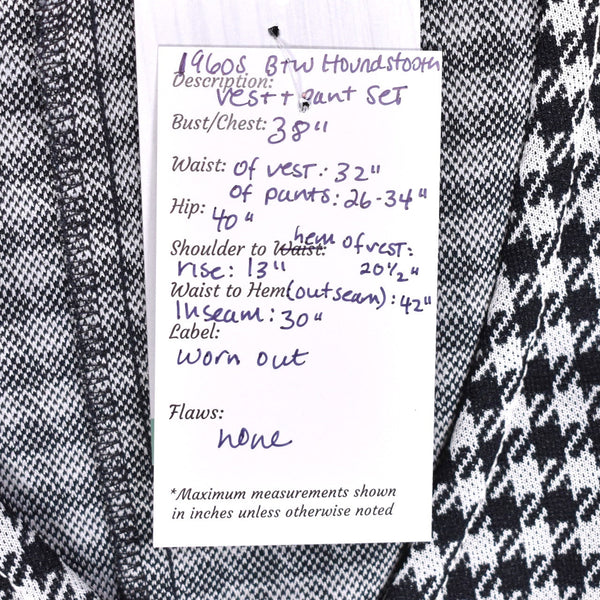 1960s B+W Houndstooth
Description:
Vest + Pant Set
Bust/Chest: 38"
Waist: of vest: 32"
of pants: 26-34"
Hip: 40"
hem of vest:
Shoulder to Waist: 20½"
rise: 13"
Waist to Hem (outseam): 42"
Inseam: 30"
Label:
Worn out
Flaws:
none
*Maximum measurements shown
in inches unless otherwise noted